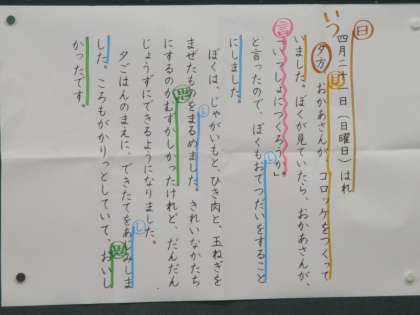 日
いつ
四月二十一日（日曜日）はれ
夕方、おかあさんが、コロッケをつくって
いました。ぼくが見ていたら、おかあさんが、
「いっしょにつくろうか」
と言ったので、ぼくもおてつだいをすること
にしました。
ぼくは、じゃがいもと、ひき肉と、玉ねぎを
まぜたものをまるめました。きれいなかたち
にするのがむずかしかったけれど、だんだん
じょうずにできるようになりました。
夕ごはんのまえに、できたてをあじみしま
した。ころもがかりっとしていて、おいし
かったです。